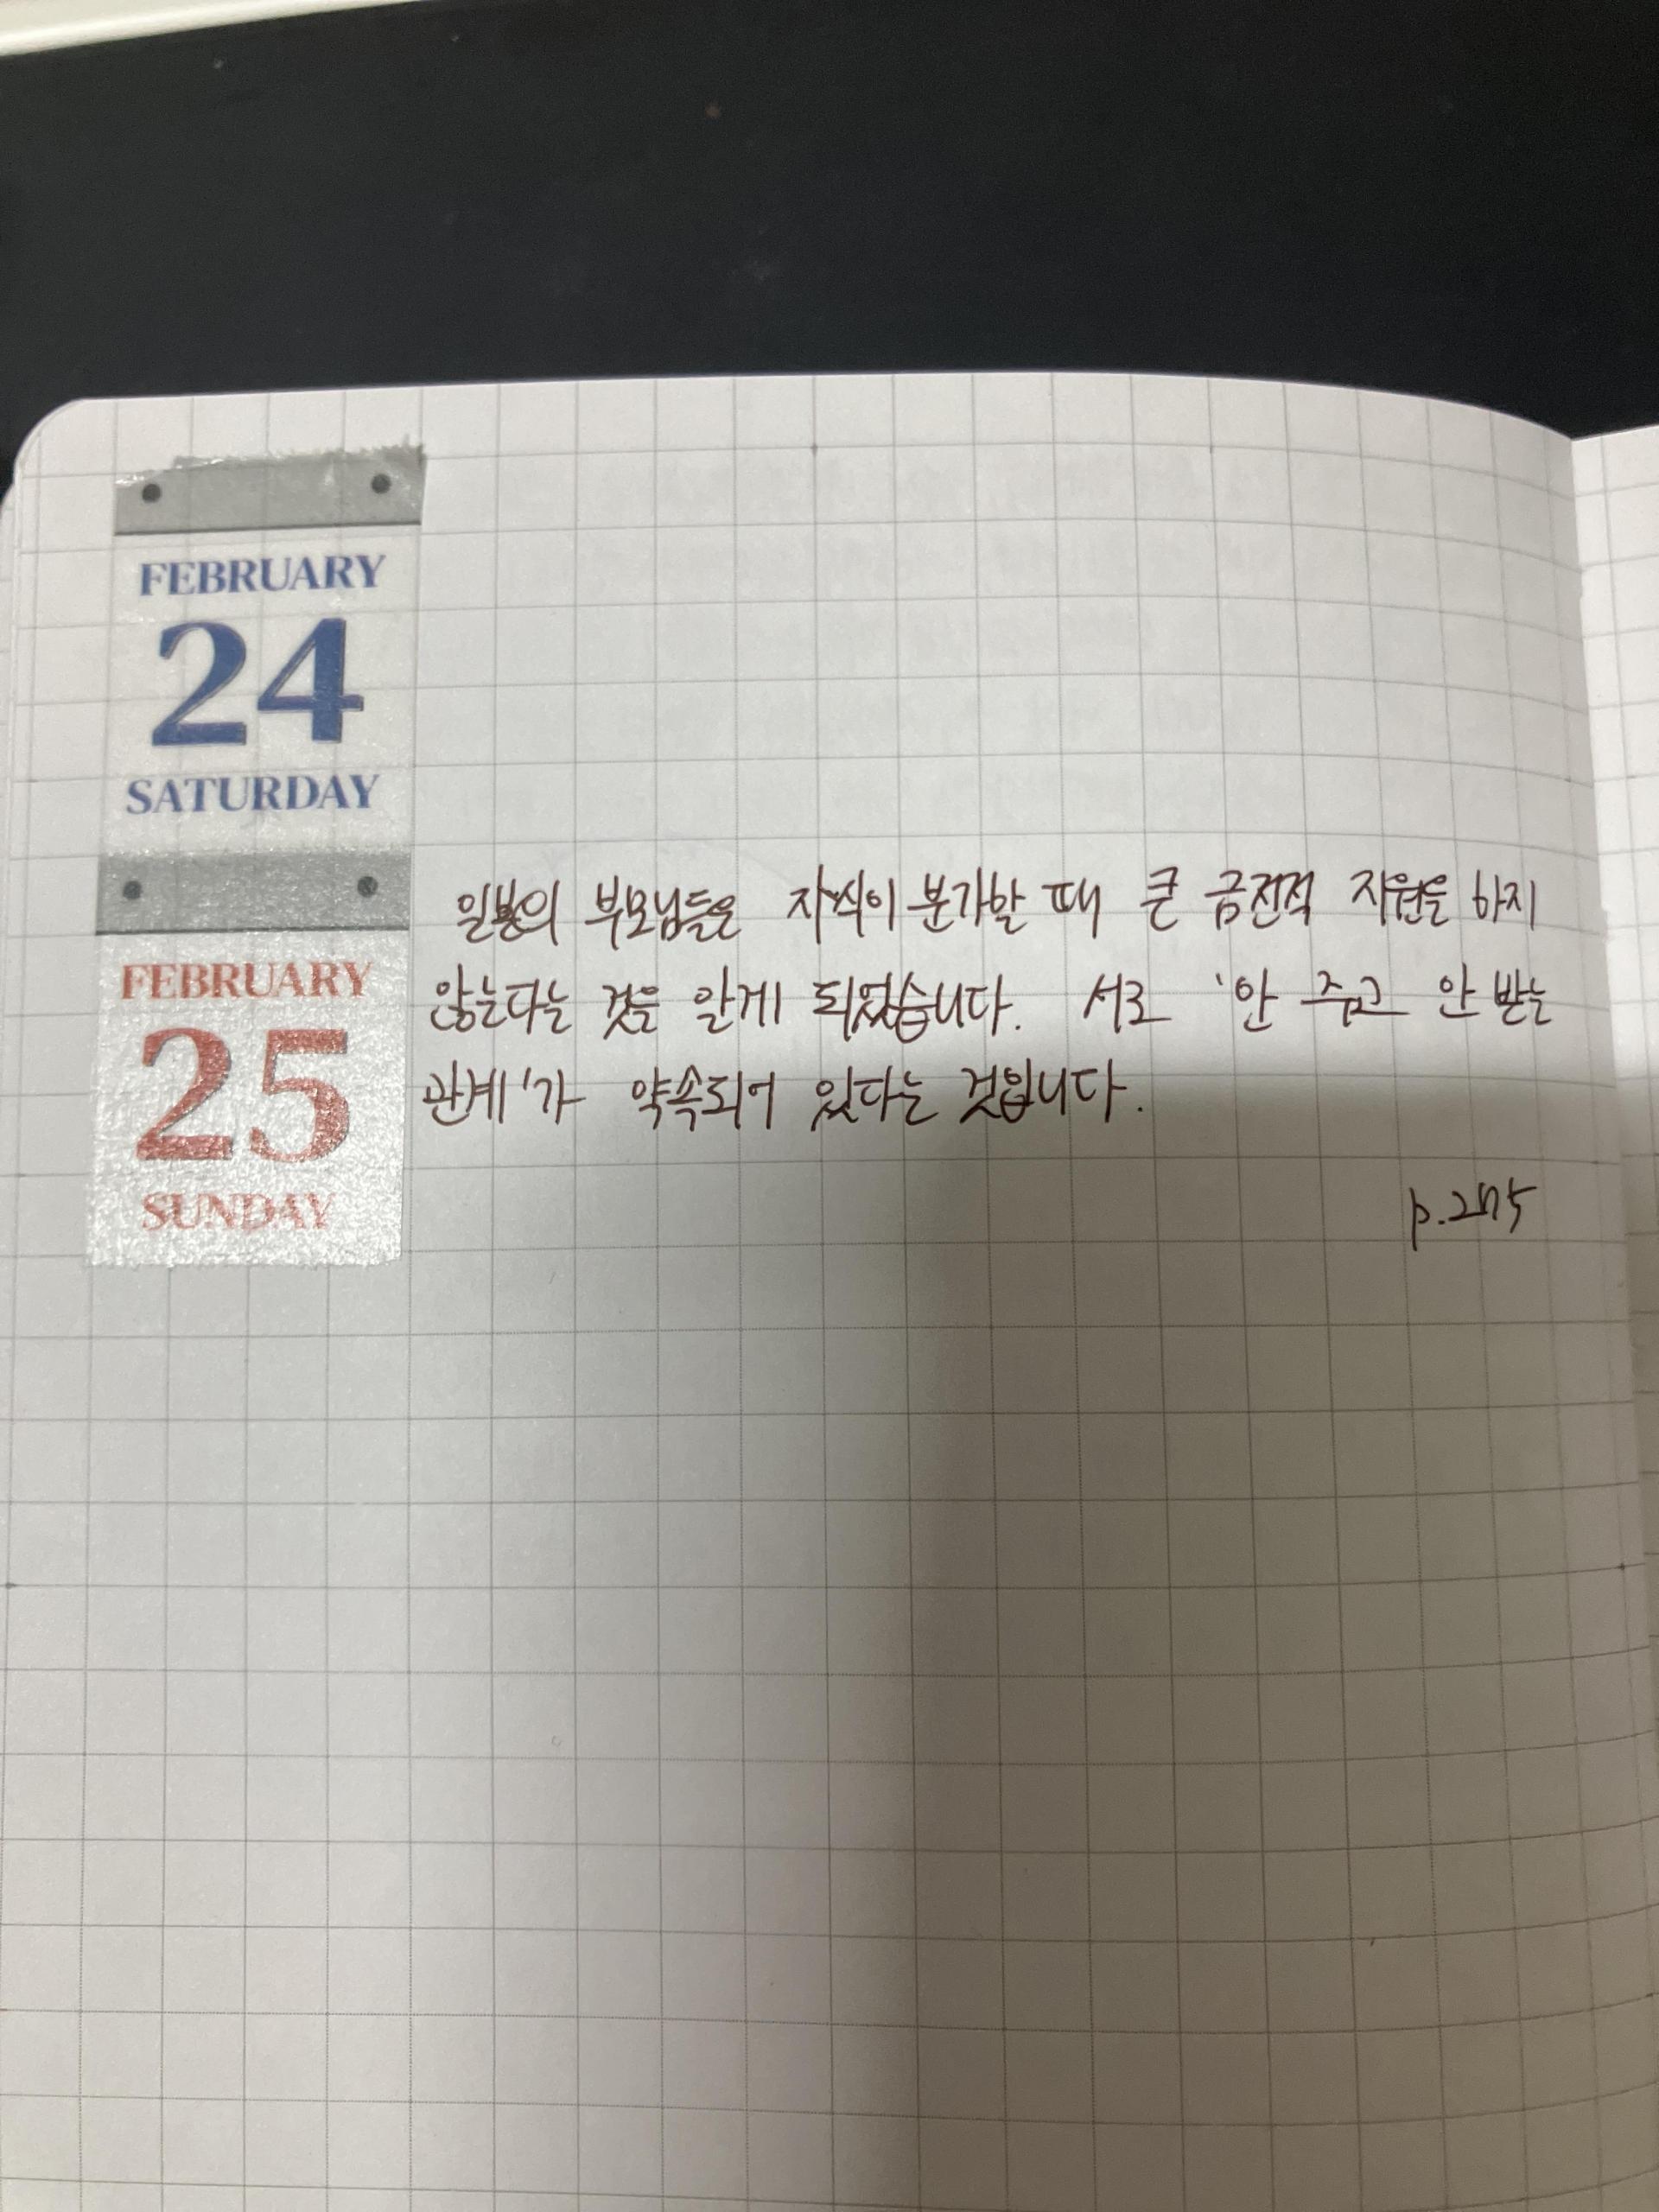 FEBRUARY
24
SATURDAY
FEBRUARY
25
SUNDAY
일본의 부모님들은 자식이 분가할 때 큰 금전적 지원을 하지
않는다는 것을 알게 되었습니다. 서로 '안 주고 안 받는
관계'가 약속되어 있다는 것입니다.
p.275